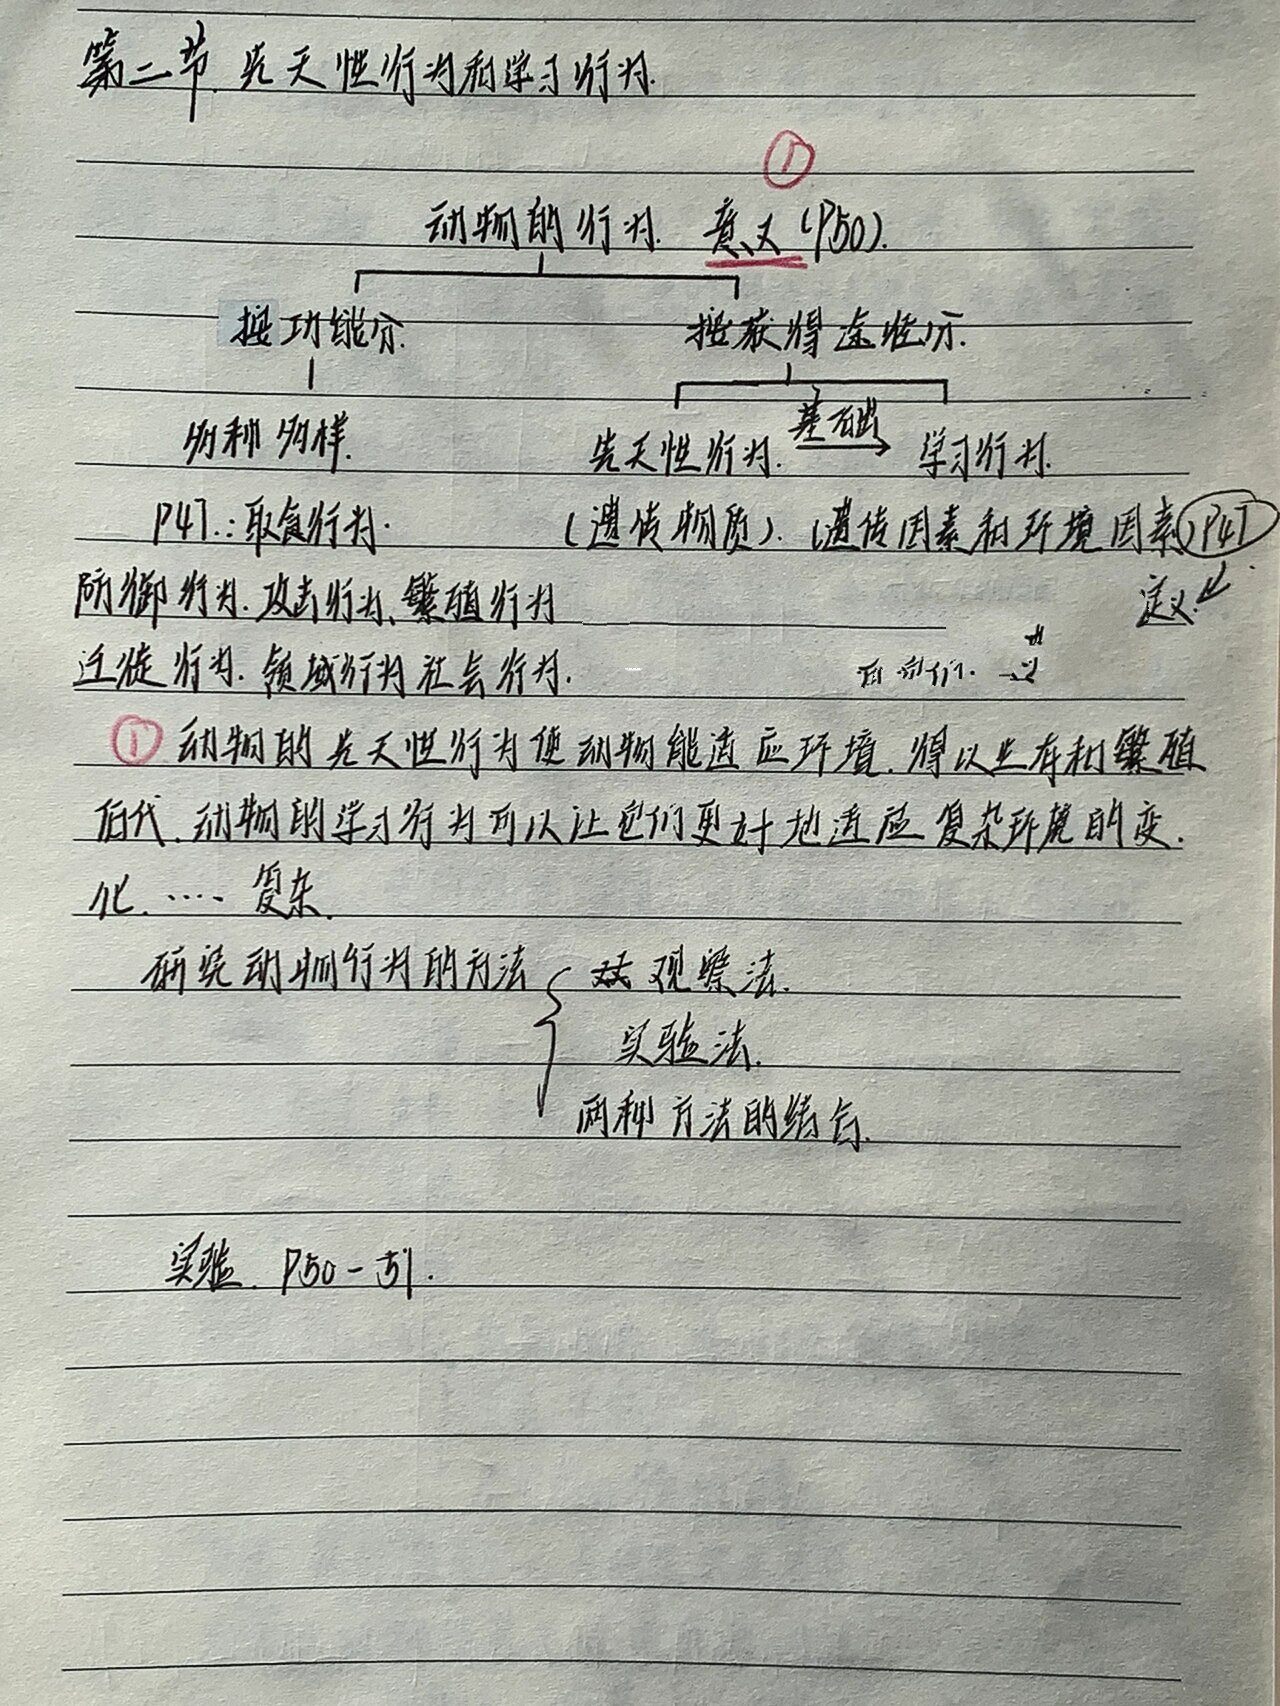 第二节.先天性行为和学习行为.
①
动物的行为. 意义(P50).
按功能分. 按获得途径分.
多种多样. 先天性行为. 基础 学习行为.
P47.:取食行为. (遗传物质). (遗传因素和环境因素)P47
防御行为.攻击行为、繁殖行为 定义:
迁徙行为.领域行为社会行为.
①动物的先天性行为使动物能适应环境.得以生存和繁殖
后代.动物的学习行为可以让它们更好地适应复杂环境的变.
化. ····复杂.
研究动物行为的方法 观察法.
实验法.
两种方法的结合.
实验. P50-51.